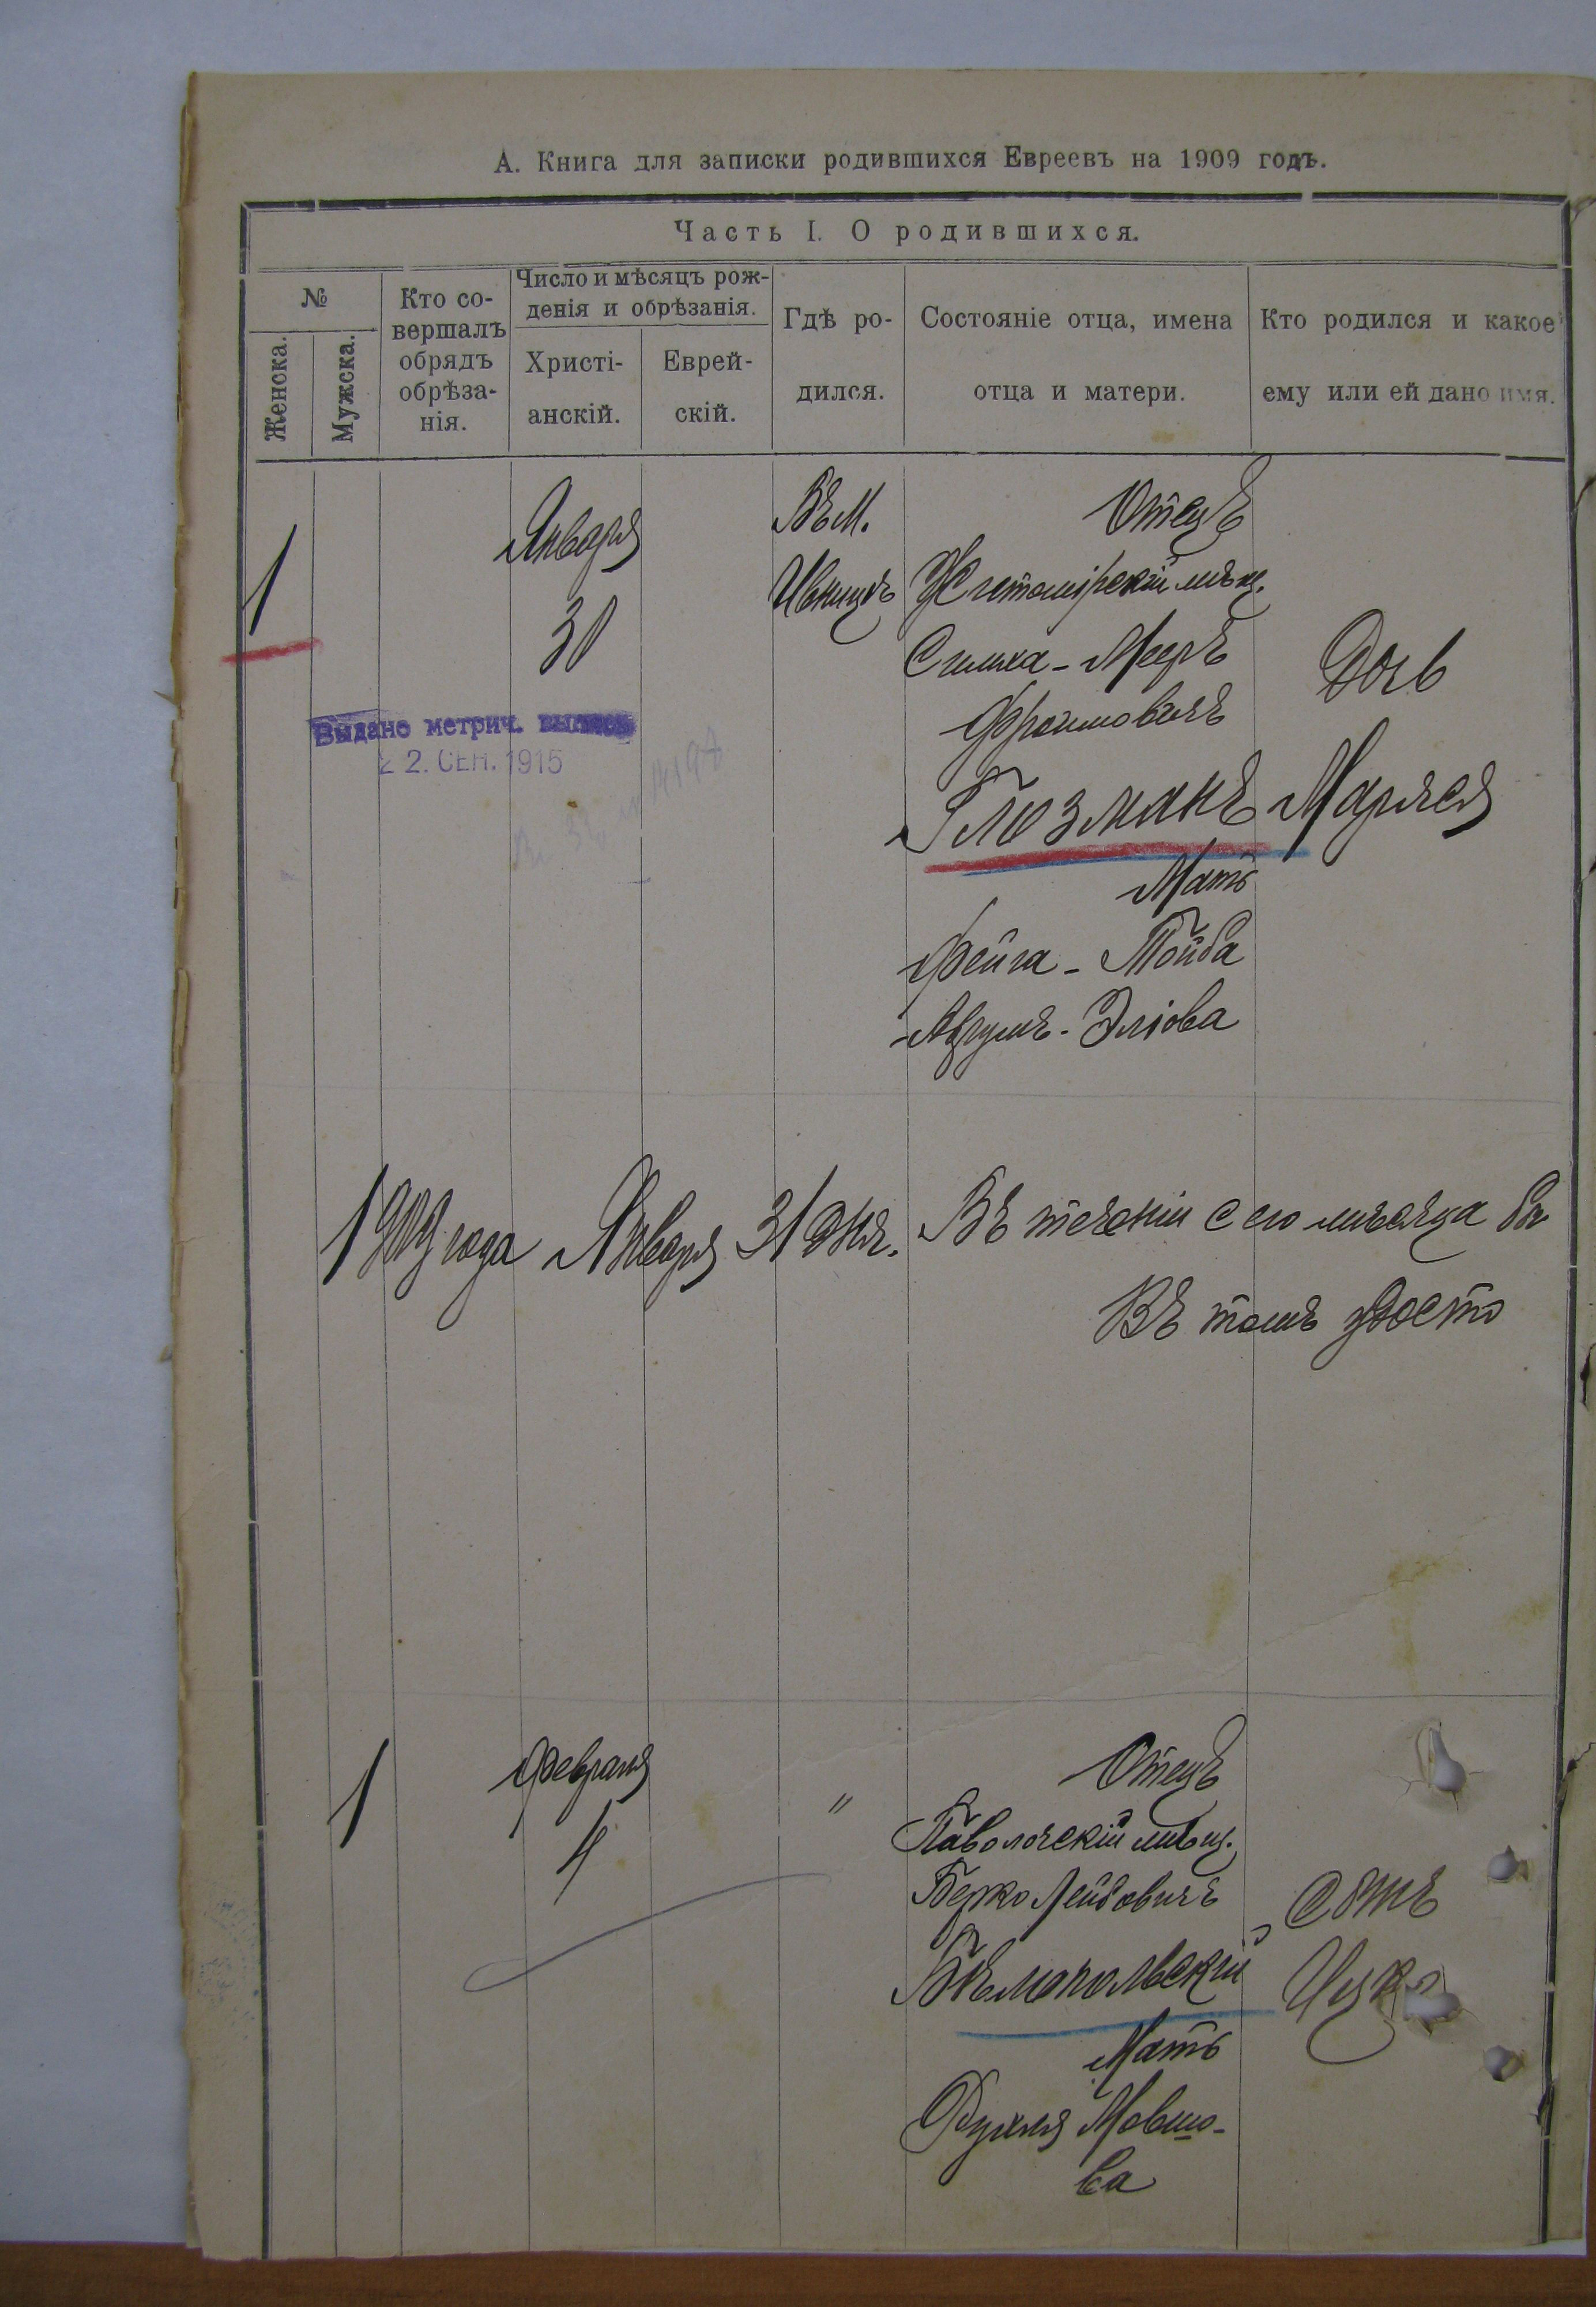 А. Книга для записки родившихся Евреевъ на 1909 годъ.
Часть I. О родившихся.
№
Женска.
Мужска.
Кто со-
вершалъ
обрядъ
обрѣза-
нія.
Число и мѣсяцъ рож-
денія и обрѣзанія.
Христі-
анскій.
Еврей-
скій.
Гдѣ ро-
дился.
Состояніе отца, имена
отца и матери.
Кто родился и какое
ему или ей дано имя.
1
Января
30
Въ М.
Ивницѣ
Отецъ
Житомірскій мѣщ.
Симха-Мееръ
Фроимовичъ
Глозманъ
Мать
Фейга-Тойба
Аврумъ-Эліова
Дочь
Маряся
Выдано метрич.
22. СЕН. 1915
1909 года Января 31 дня. Въ теченіи сего мѣсяца
Въ томъ удосто
1
Февраля
4
"
Отецъ
Паволочскій мѣщ.
Берко Лейбовичъ
Бѣлопольскій
Мать
Рухля Мовшо-
ва
Сынъ
Ицко